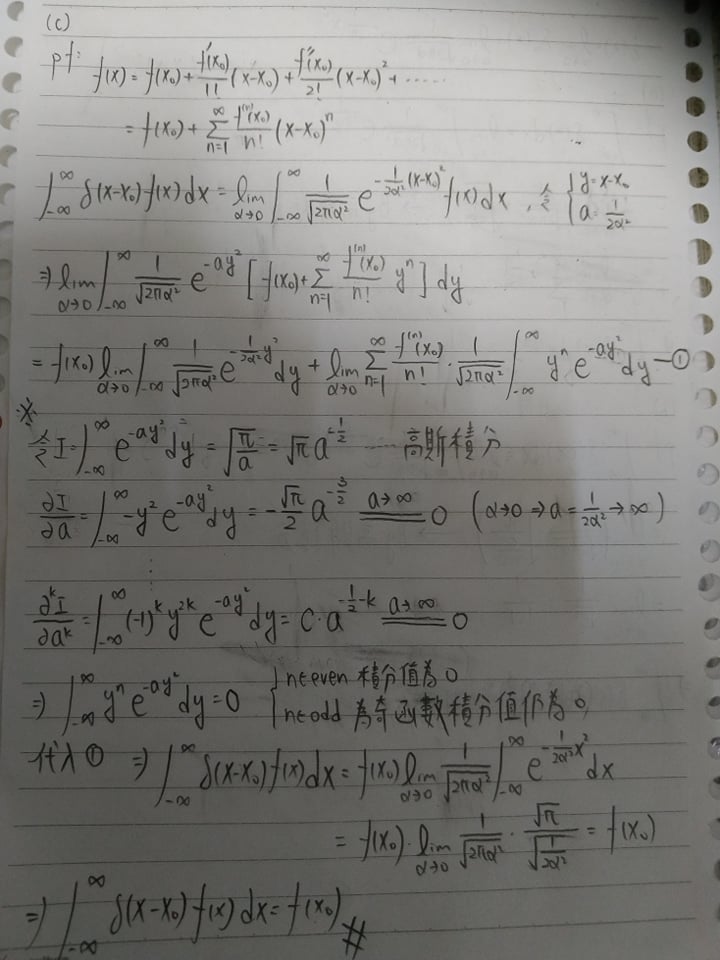 (c)
pf: f(x) = f(x₀) + f'(x₀)/1! (x-x₀) + f''(x₀)/2! (x-x₀)² + ······
= f(x₀) + ∑_{n=1}^{∞} f⁽ⁿ⁾(x₀)/n! (x-x₀)ⁿ
∫_{-∞}^{∞} δ(x-x₀) f(x) dx = lim_{α→0} ∫_{-∞}^{∞} 1/√(2πα²) e^{-1/(2α²) (x-x₀)²} f(x) dx , 令 { y = x-x₀ a = 1/(2α²)
⇒ lim_{α→0} ∫_{-∞}^{∞} 1/√(2πα²) e^{-ay²} [ f(x₀) + ∑_{n=1}^{∞} f⁽ⁿ⁾(x₀)/n! yⁿ ] dy
= f(x₀) lim_{α→0} ∫_{-∞}^{∞} 1/√(2πα²) e^{-1/(2α²) y²} dy + lim_{α→0} ∑_{n=1}^{∞} f⁽ⁿ⁾(x₀)/n! · 1/√(2πα²) ∫_{-∞}^{∞} yⁿ e^{-ay²} dy —①
※
令 I = ∫_{-∞}^{∞} e^{-ay²} dy = √(π/a) = √π a^{-1/2} ······ 高斯積分
∂I/∂a = ∫_{-∞}^{∞} -y² e^{-ay²} dy = -√π/2 a^{-3/2} a→∞ = 0 ( α→0 ⇒ a = 1/(2α²) → ∞ )
⋮
∂ᵏI/∂aᵏ = ∫_{-∞}^{∞} (-1)ᵏ y²ᵏ e^{-ay²} dy = c · a^{-1/2-k} a→∞ = 0
⇒ ∫_{-∞}^{∞} yⁿ e^{-ay²} dy = 0 { n∈even 積分值為 0
n∈odd 為奇函數積分值仍為 0
代入 ① ⇒ ∫_{-∞}^{∞} δ(x-x₀) f(x) dx = f(x₀) lim_{α→0} 1/√(2πα²) ∫_{-∞}^{∞} e^{-1/(2α²) x²} dx
= f(x₀) · lim_{α→0} 1/√(2πα²) · √π/√(1/(2α²)) = f(x₀)
⇒ ∫_{-∞}^{∞} δ(x-x₀) f(x) dx = f(x₀) #